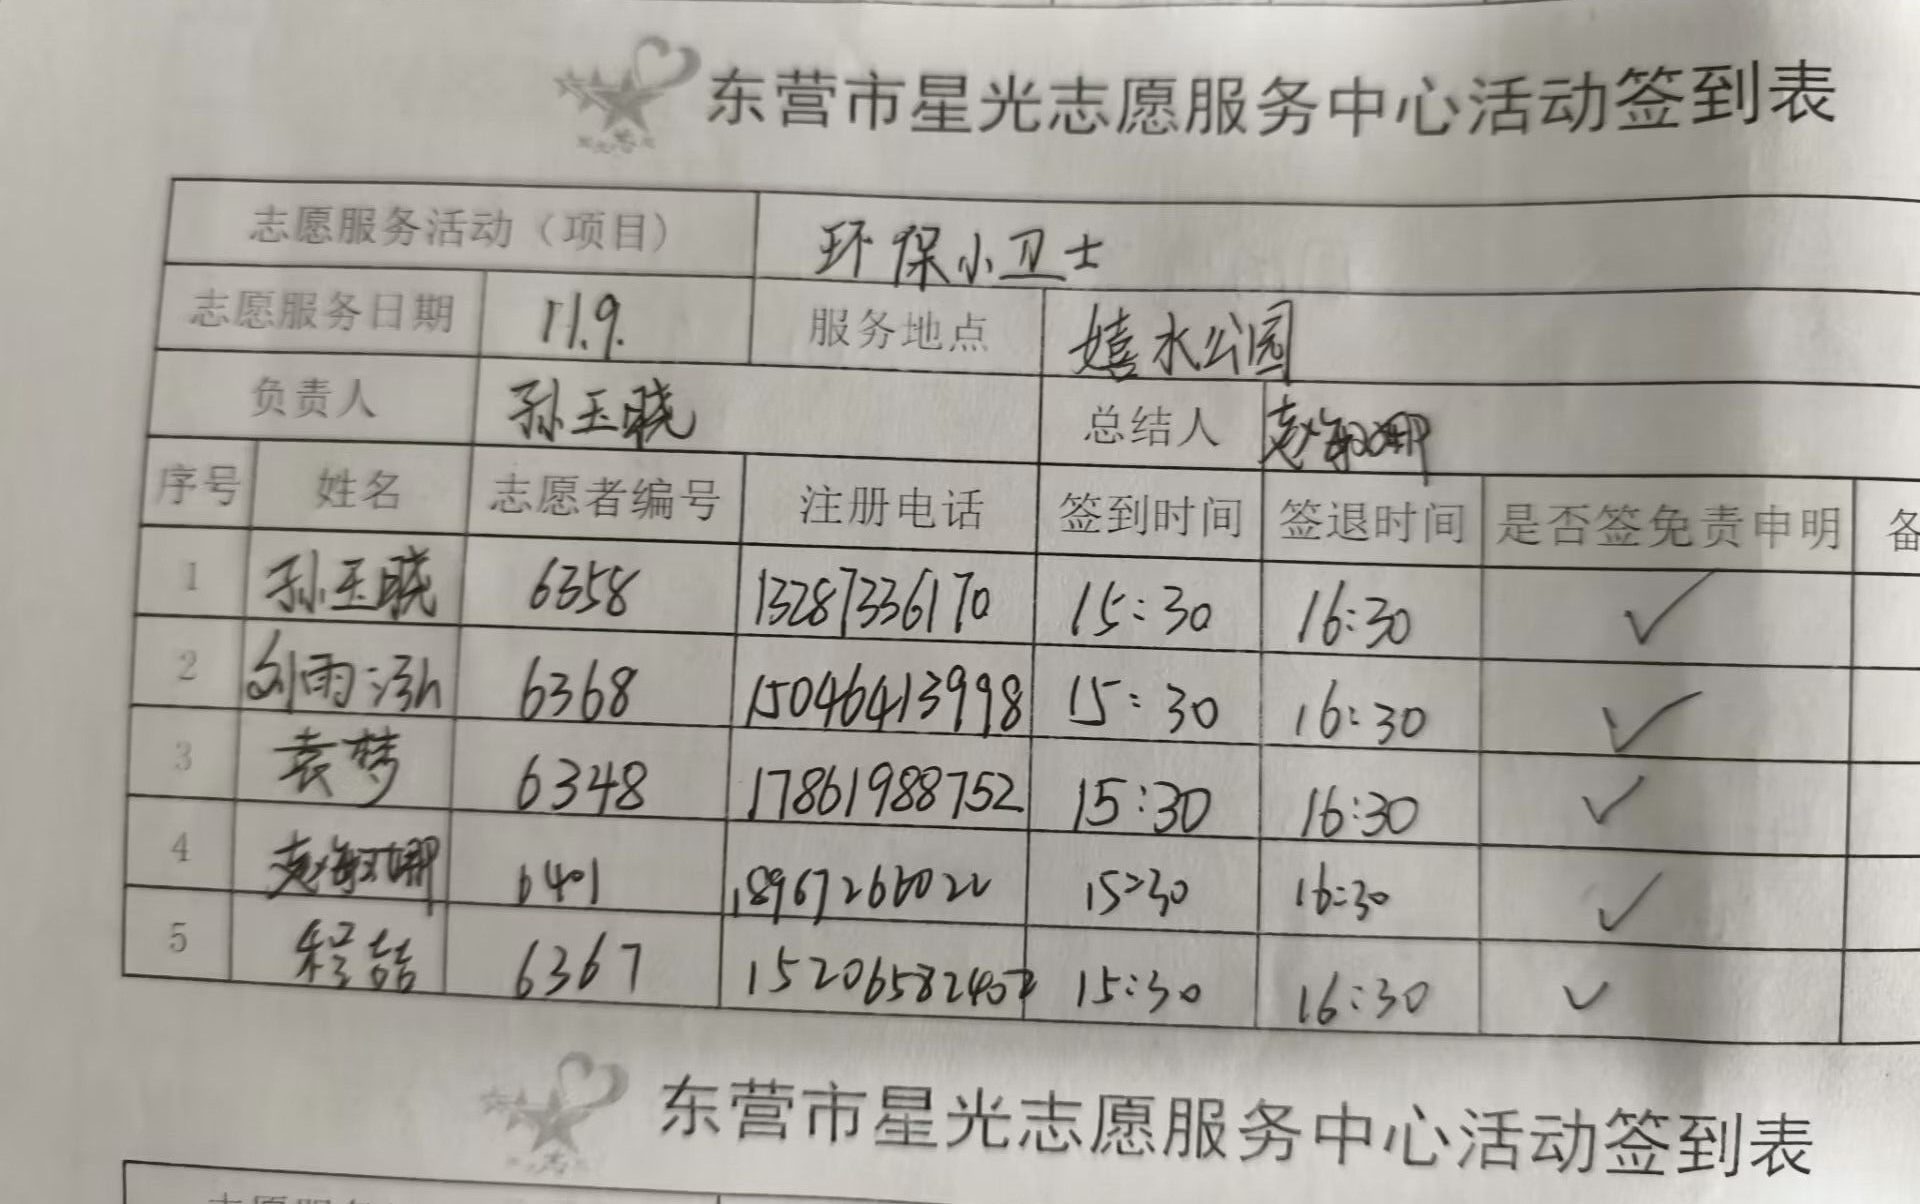 东营市星光志愿服务中心活动签到表
志愿服务活动（项目） 环保小卫士
志愿服务日期 11.9. 服务地点 嬉水公园
负责人 孙玉晓 总结人 赵海娜
序号 姓名 志愿者编号 注册电话 签到时间 签退时间 是否签免责申明 备
1 孙玉晓 6358 13287336170 15:30 16:30 ✓
2 刘雨泓 6368 15046413998 15:30 16:30 ✓
3 袁梦 6348 17861988752 15:30 16:30 ✓
4 6401 15:30 16:30 ✓
5 程喆 6367 15:30 16:30 ✓
东营市星光志愿服务中心活动签到表